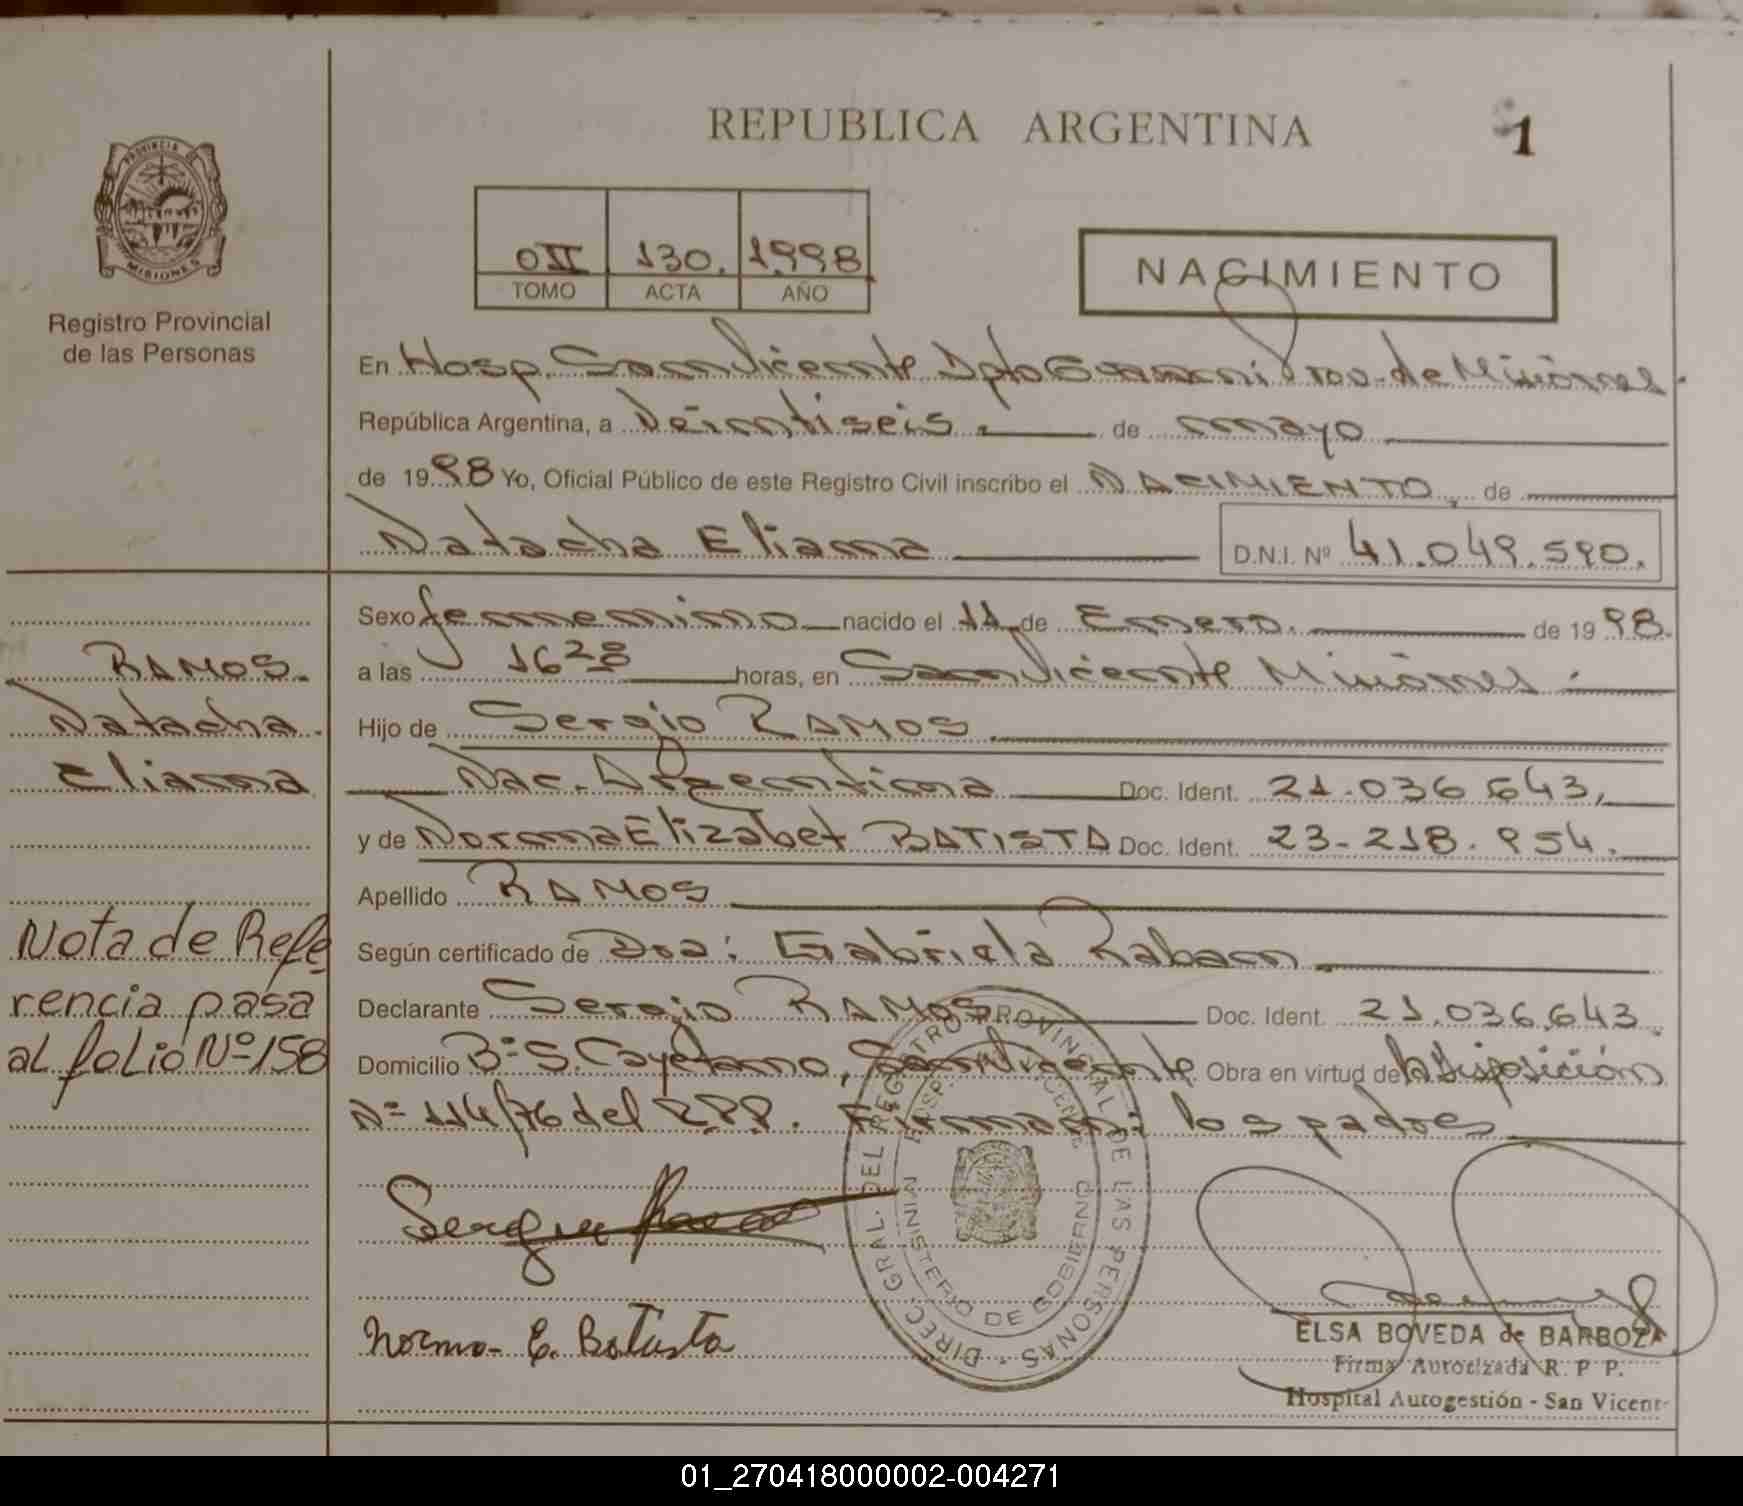 REPUBLICA ARGENTINA
1
PROVINCIA DE
MISIONES
Registro Provincial
de las Personas
0II 130. 1998
TOMO ACTA AÑO
NACIMIENTO
En Hosp. San Vicente Dpto Guaraní Prov. de Misiones.
República Argentina, a Veintiseis. de mayo
de 1998 Yo, Oficial Público de este Registro Civil inscribo el NACIMIENTO, de
Natacha Eliana D.N.I. Nº 41.049.590.
Sexo femenino nacido el 11 de Enero. de 1998.
a las 16 28 horas, en San Vicente Misiones
Hijo de Sergio RAMOS
Nac. Argentina Doc. Ident. 21.036.643,
y de Norma Elizabet BATISTA Doc. Ident. 23-218.954.
Apellido RAMOS
Según certificado de Dra: Gabriela
Declarante Sergio RAMOS Doc. Ident. 21.036.643.
Domicilio Bº S. Cayetano, San Vicente Obra en virtud de la Disposición
Nº 114/76 del R.P.P. Firman: los padres
RAMOS.
Natacha
Eliana
Nota de Refe
rencia pasa
al folio Nº 158
Norma E. Batista
DIREC. GRAL. DEL REGISTRO PROVINCIAL DE LAS PERSONAS
HOSP. SAN VICENTE
MINISTERIO DE GOBIERNO
ELSA BOVEDA de BARBOZA
Firma Autorizada R. P. P.
Hospital Autogestión - San Vicent
01_270418000002-004271